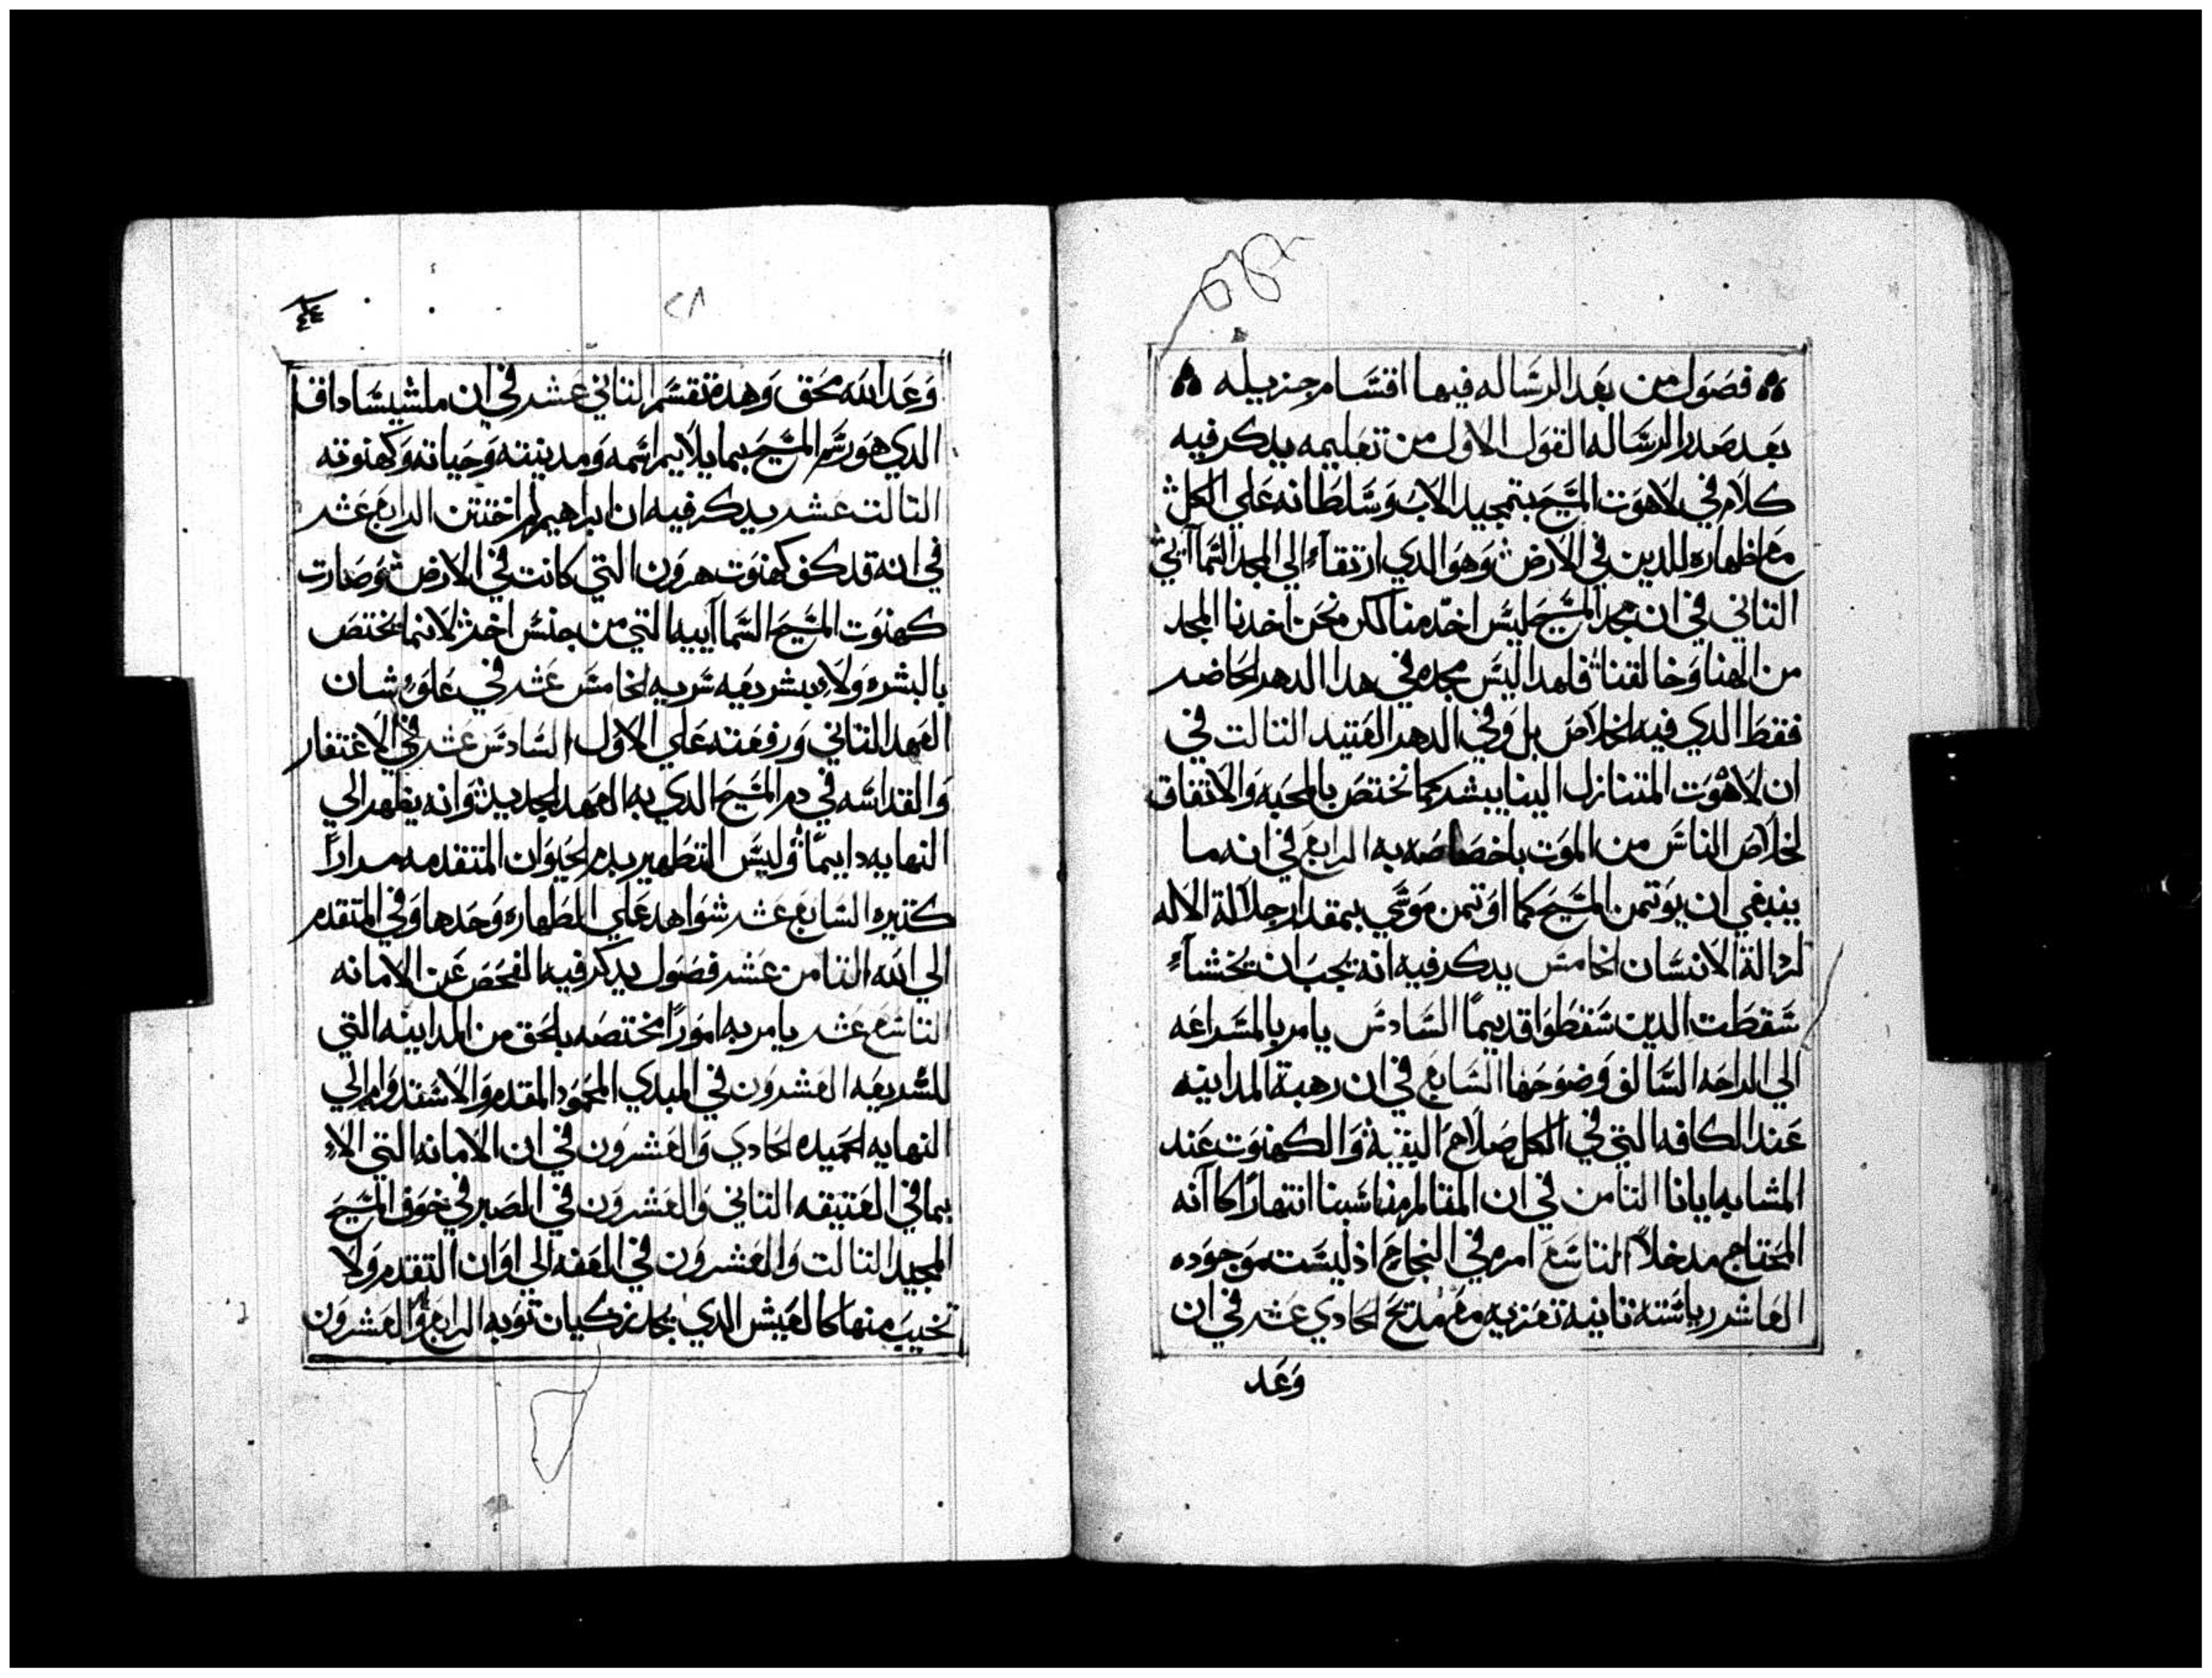 فصول من بعد الرساله فيها اقسام جزيله
بعد صدر الرساله القول الاول من تعليمه يدكر فيه
كلام في لاهوت المسيح بتمجيد الاب وسلطانه علي الكل
مع اظهاره للدين في الارض وهو الدي ارتقاء الي المجد السماآيي
التاني في ان مجد المسيح ليس اخده منا لكن نحن اخدنا المجد
من الهنا وخالقنا فلهدا ليس مجده في هدا الدهر الحاضر
فقط الدي فيه الخلاص بل وفي الدهر العتيد التالت في
ان لاهوت المتنازل الينا يبشر كما نختص بالمحبه والاتفاق
لخلاص الناس من الموت باخصاصه به الرابع في انه ما
ينبغي ان يوتمن المسيح كما اوتمن موسي بمقدار جلالة الاله
لرالة الانسان الخامس يدكر فيه انه يجب ان يخشاء
سقطت الدين سقطوا قديما السادس يامر بالمسراعه
الي الراحه السالف وضوحها السابع في ان رهبة المداينه
عند الكافه التي في الكل صلاحم اليقية والكهنوت عند
المشابه ايانا التامن في ان انتهارا كاآنه
المحتاج مدخلا التاسع امره في النجاح اذ ليست موجوده
العاشر رياسته تانية تعزيه مع مديح الحادي عشر في ان
وعد
٢٨
٤٤
وعد الله محق وهده تقسم التاني عشر في ان ملشيساداق
الدي هو رسم المسيح بما يلايم اسمه ومدينته وحياته وكهنوته
التالت عشر يدكر فيه ان ابراهيم اختتن الرابع عشر
في انه قد كف كهنوت هرون التي كانت في الارض وصارت
كهنوت المسيح السماآييه التي من جنس اخر لانها تختص
بالبشره ولا بشريعه سريه الخامس عشر في علو شان
العهد التاني ورفعته علي الاول السادس عشر في الاغتفار
والقداسه في دم المسيح الدي به العهد الجديد وانه يظهر الي
النهايه دايما وليس التطهير بدم الحيوان المتقدمه مرارا
كتيره السابع عشر شواهد علي الطهاره وحدها وفي المتقدم
الي الله التامن عشر فصول يدكر فيه الفحص عن الامانه
التاسع عشر يامر به امورا مختصه بالحق من المداينه التي
للشريعه العشرون في المبدي المحمود المقدم والاستقدوام الي
النهايه الحميده الحادي والعشرون في ان الامانه التي الاء
بما في العتيقه التاني والعشرون في الصبر في خوف المسيح
المجيد التالت والعشرون في العفه الي اوان التقدم ولا
تخيب منها كالعيش الدي توبه الرابع والعشرون